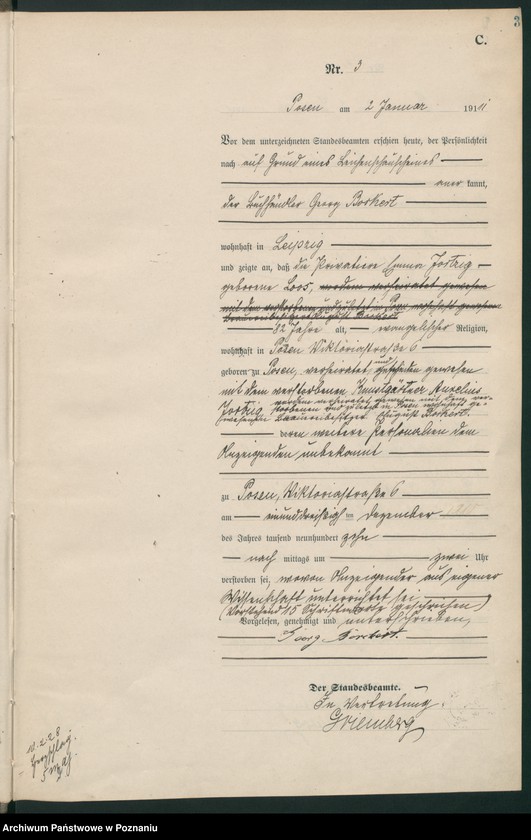 3
C.
Nr. 3
Posen am 2 Januar 1911
Vor dem unterzeichneten Standesbeamten erschien heute, der Persönlichkeit
nach auf Grund eines Leichenschauscheines
aner kannt,
der Buchhändler Georg Borkert
wohnhaft in Leipzig
und zeigte an, daß die Private Emma Jortzig
geborene Loos,
82 Jahre alt, evangelischer Religion,
wohnhaft in Posen Viktoriastraße 6
geboren zu Posen, verheiratet und geschieden gewesen
mit dem verstorbenen Kunstgärtner Aurelius
Jortzig
deren weitere Personalien dem
Anzeigenden unbekannt
zu Posen, Viktoriastraße 6
am einunddreißigsten Dezember
des Jahres tausend neunhundert zehn
nach mittags um zwei Uhr
verstorben sei, wovon Anzeigender aus eigener
Wissenschaft unterrichtet sei
(Vorstehend 15 Schriftworte gestrichen)
Vorgelesen, genehmigt und unterschrieben,
Georg Borkert.
Der Standesbeamte.
In Vertretung.
Archiwum Państwowe w Poznaniu